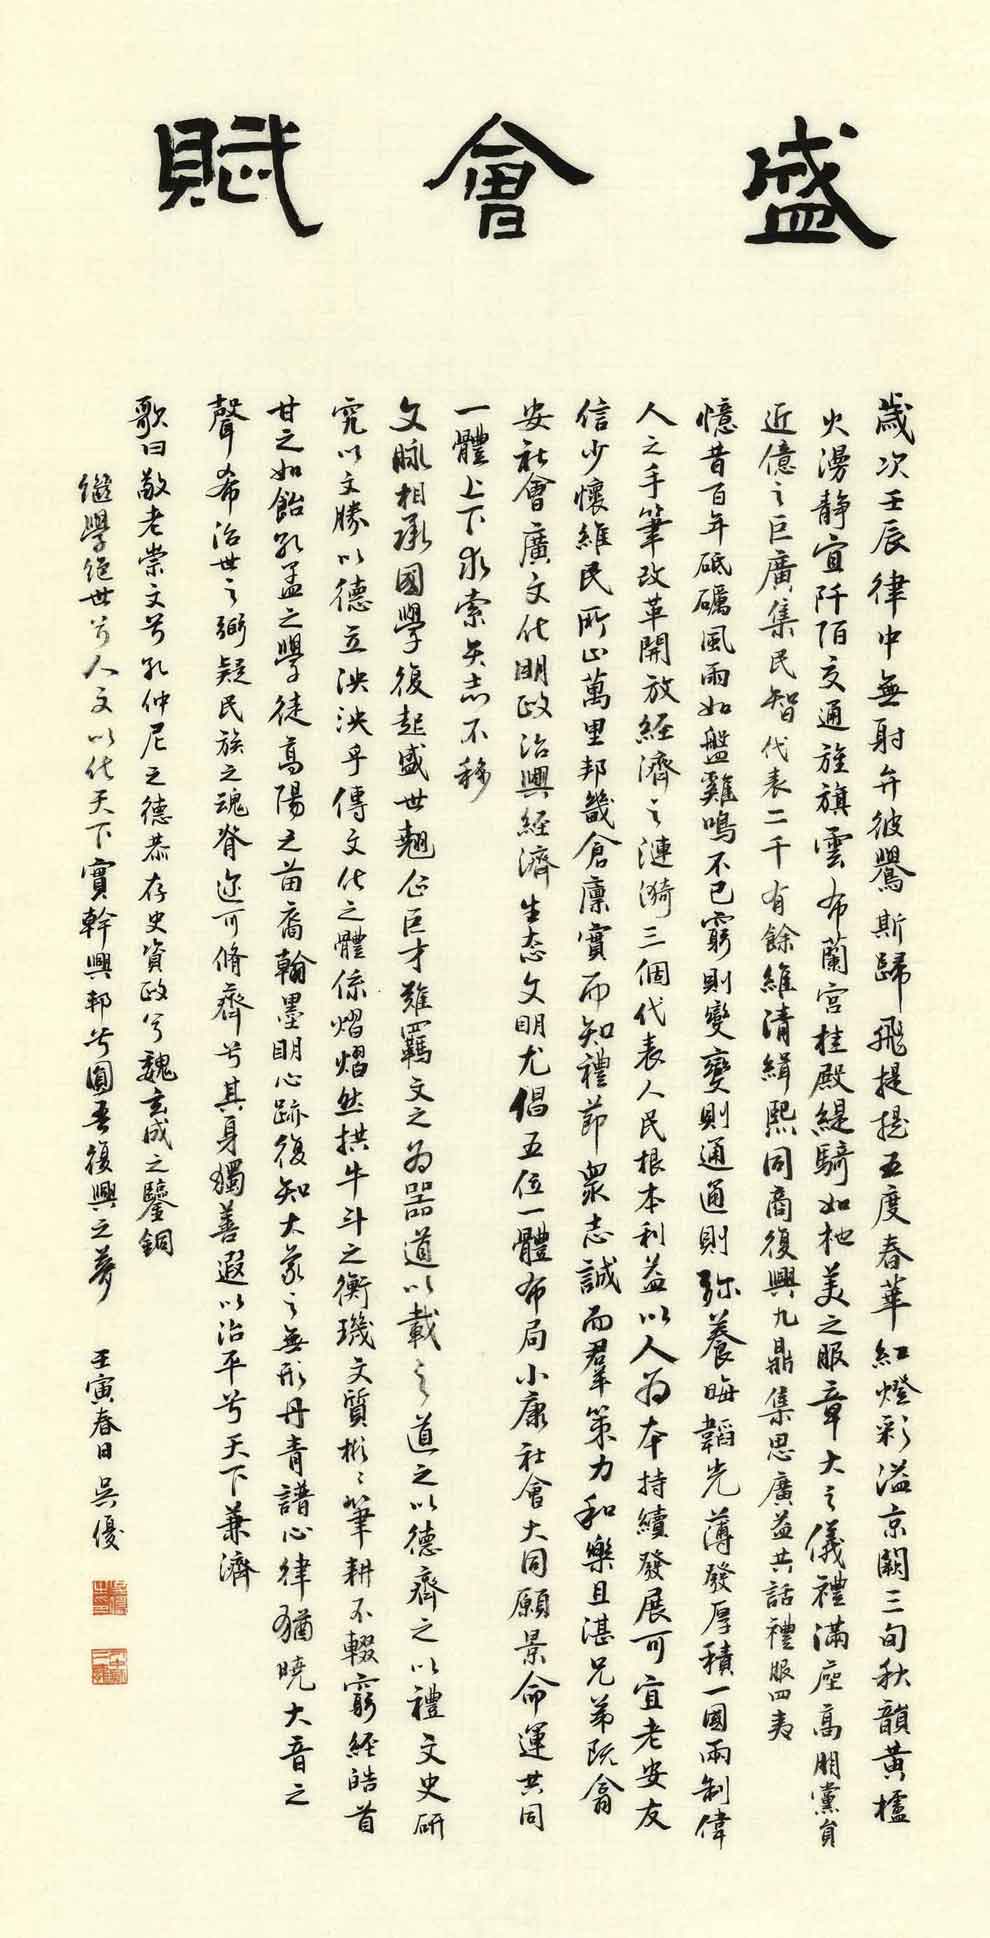 盛會賦
歲次壬辰律中無射弁彼鸒斯歸飛提提五度春華紅燈彩溢京闕三旬秋韻黃櫨
火漫靜宜阡陌交通旌旗雲布蘭宮桂殿緹騎如柂美之服章大之儀禮滿座高朋黨員
近億之巨廣集民智代表二千有餘維清緝熙同商復興九鼎集思廣益共話禮服四夷
憶昔百年砥礪風雨如盤雞鳴不已窮則變變則通通則弥養晦韜光薄發厚積一國兩制偉
人之手筆改革開放經濟之漣漪三個代表人民根本利益以人為本持續發展可宜老安友
信少懷維民所止萬里邦畿倉廩實而知禮節眾志誠而羣策力和樂且湛兄弟既翕
安社會廣文化明政治興經濟生态文明尤倡五位一體布局小康社會大同願景命運共同
一體上下求索矢志不移
文脉相承國學復起盛世翹企巨才難羈文之為器道以載之道之以德齊之以禮文史研
究以文勝以德立泱泱乎傳文化之體係熠熠然拱牛斗之衡璣文質彬彬筆耕不輟窮經皓首
甘之如飴孔孟之學徒高陽之苗裔翰墨明心跡復知大象之無形丹青譜心律猶曉大音之
聲希治世之弼疑民族之魂脊迩可脩齊兮其身獨善遐以治平兮天下兼濟
歌曰敬老崇文兮孔仲尼之德恭存史資政兮魏玄成之鑒銅
繼學絕世兮人文以化天下實幹興邦兮圓吾復興之夢
壬寅春日吳優